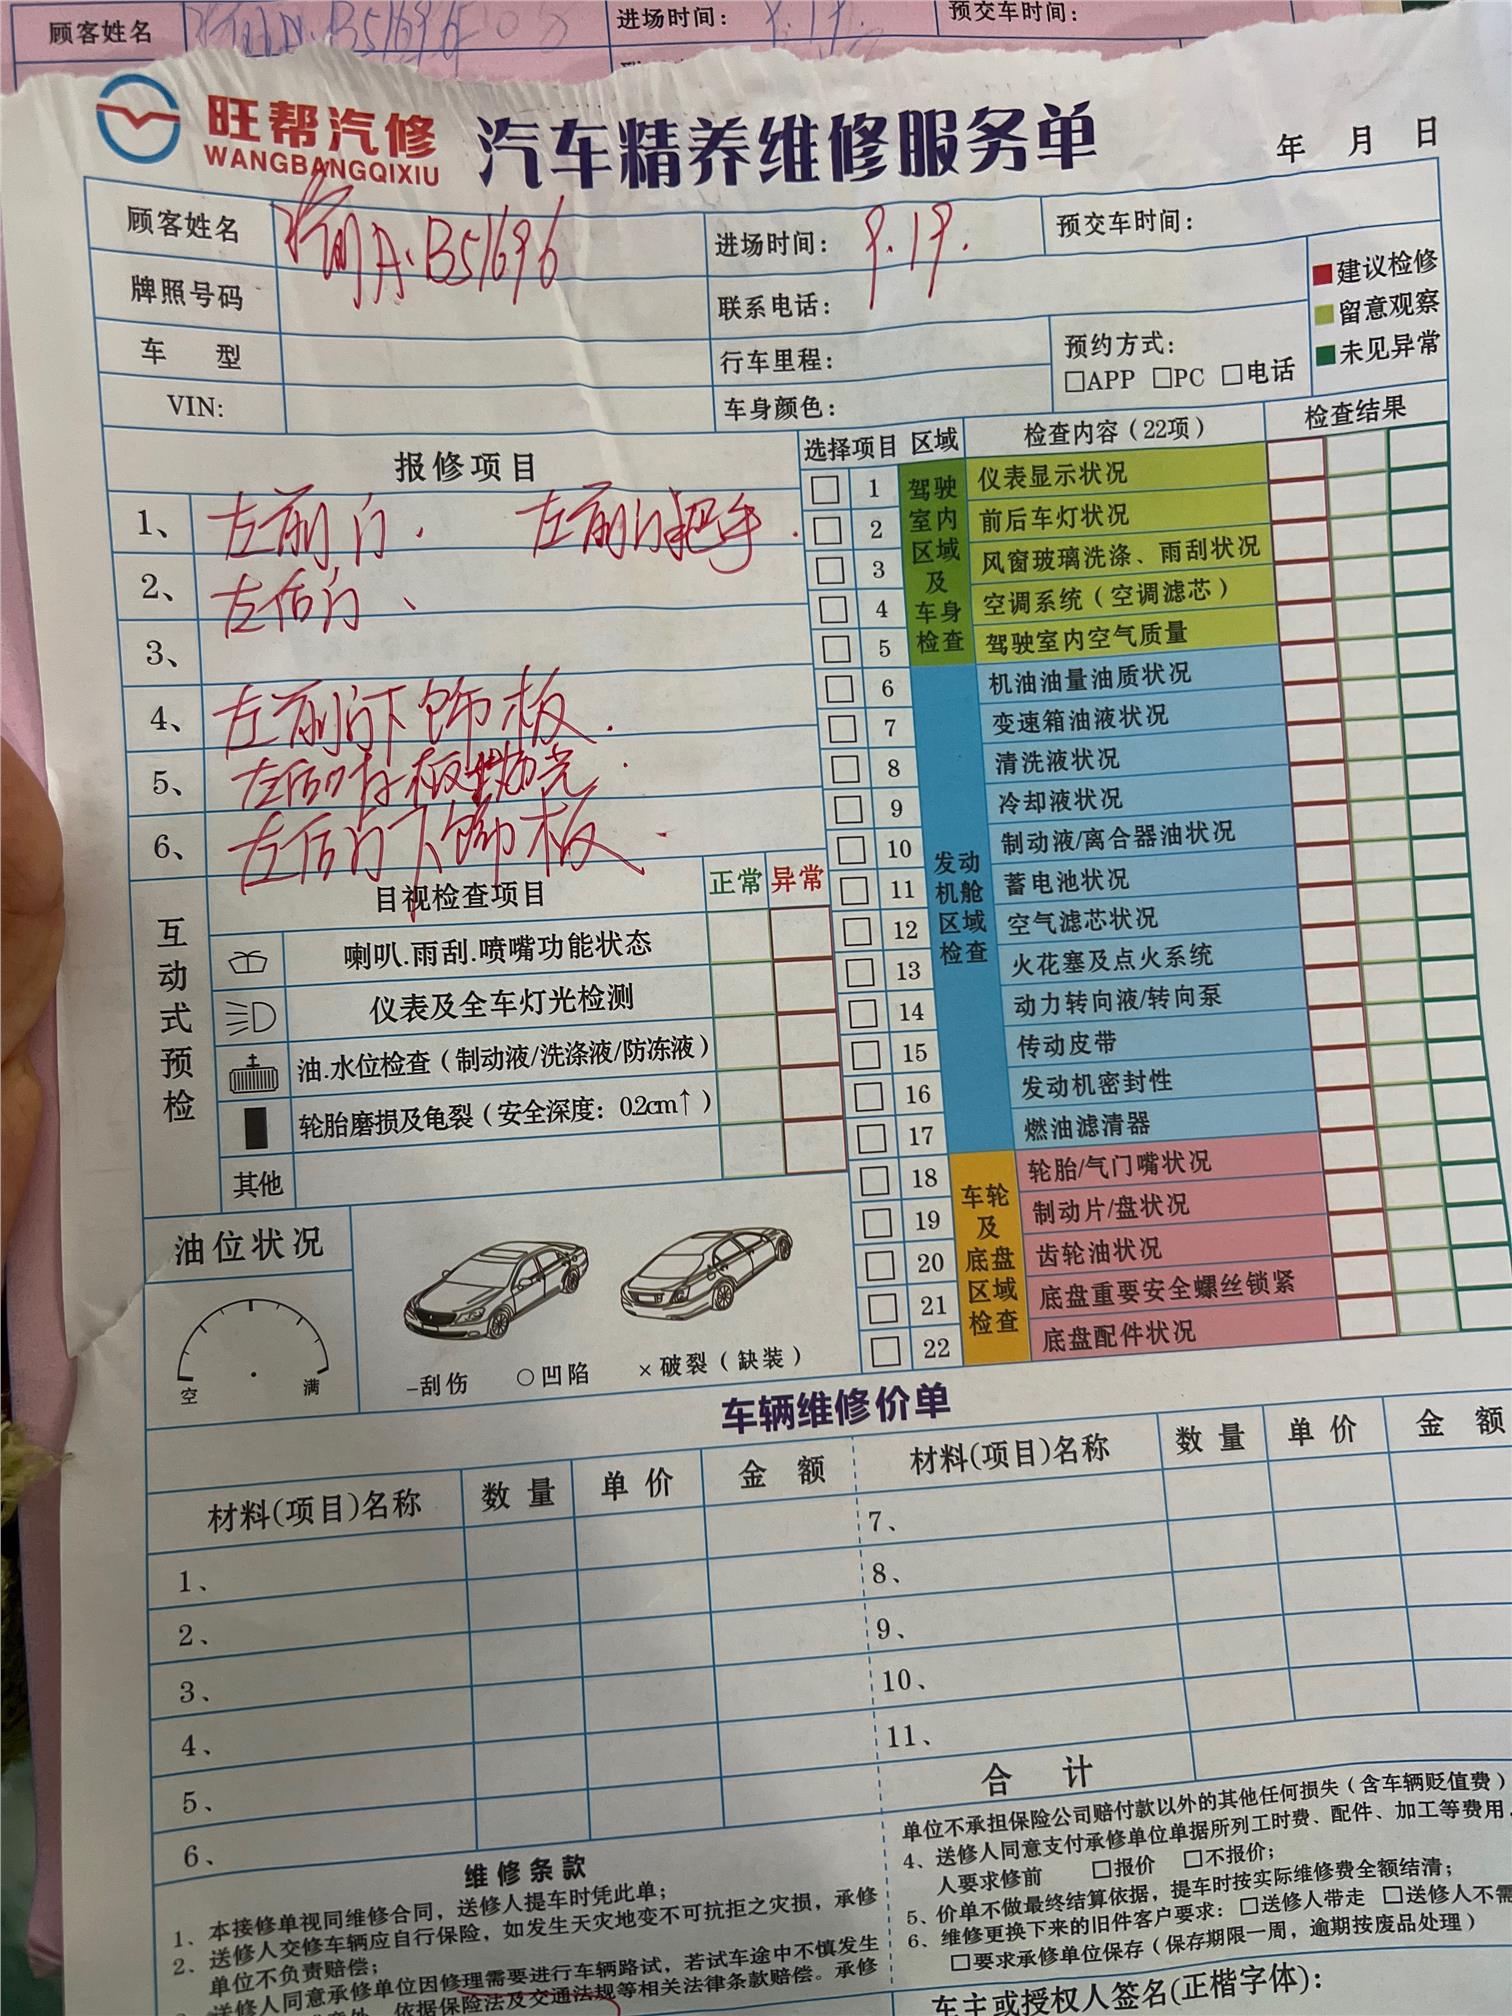 顾客姓名
进场时间：
预交车时间：
旺帮汽修
WANGBANGQIXIU
汽车精养维修服务单
年 月 日
顾客姓名
A·B51696
进场时间： 9.19.
预交车时间：
牌照号码
联系电话：
■建议检修
■留意观察
■未见异常
车 型
行车里程：
预约方式：
□APP □PC □电话
VIN:
车身颜色：
报修项目
1、 左前门. 左前门把手.
2、 左后门、
3、
4、 左前门下饰板.
5、 左后叶子板抛光.
6、 左后门下饰板.
选择项目 区域 检查内容（22项） 检查结果
驾驶室内区域及车身检查
1 仪表显示状况
2 前后车灯状况
3 风窗玻璃洗涤、雨刮状况
4 空调系统（空调滤芯）
5 驾驶室内空气质量
发动机舱区域检查
6 机油油量油质状况
7 变速箱油液状况
8 清洗液状况
9 冷却液状况
10 制动液/离合器油状况
11 蓄电池状况
12 空气滤芯状况
13 火花塞及点火系统
14 动力转向液/转向泵
15 传动皮带
16 发动机密封性
17 燃油滤清器
车轮及底盘区域检查
18 轮胎/气门嘴状况
19 制动片/盘状况
20 齿轮油状况
21 底盘重要安全螺丝锁紧
22 底盘配件状况
互动式预检
目视检查项目 正常 异常
喇叭.雨刮.喷嘴功能状态
仪表及全车灯光检测
油.水位检查（制动液/洗涤液/防冻液）
轮胎磨损及龟裂（安全深度：0.2cm↑）
其他
油位状况
空 满
-刮伤 ○凹陷 ×破裂（缺装）
车辆维修价单
材料(项目)名称 数 量 单 价 金 额
材料(项目)名称 数 量 单 价 金 额
1、
2、
3、
4、
5、
6、
7、
8、
9、
10、
11、
合 计
维修条款
1、本接修单视同维修合同，送修人提车时凭此单；
2、送修人交修车辆应自行保险，如发生天灾地变不可抗拒之灾损，承修
单位不负责赔偿；
送修人同意承修单位因修理需要进行车辆路试，若试车途中不慎发生
依据保险法及交通法规等相关法律条款赔偿。承修
单位不承担保险公司赔付款以外的其他任何损失（含车辆贬值费）
4、送修人同意支付承修单位单据所列工时费、配件、加工等费用，
人要求修前 □报价 □不报价；
5、价单不做最终结算依据，提车时按实际维修费全额结清；
6、维修更换下来的旧件客户要求：□送修人带走 □送修人不需
□要求承修单位保存（保存期限一周，逾期按废品处理）
车主或授权人签名(正楷字体)：